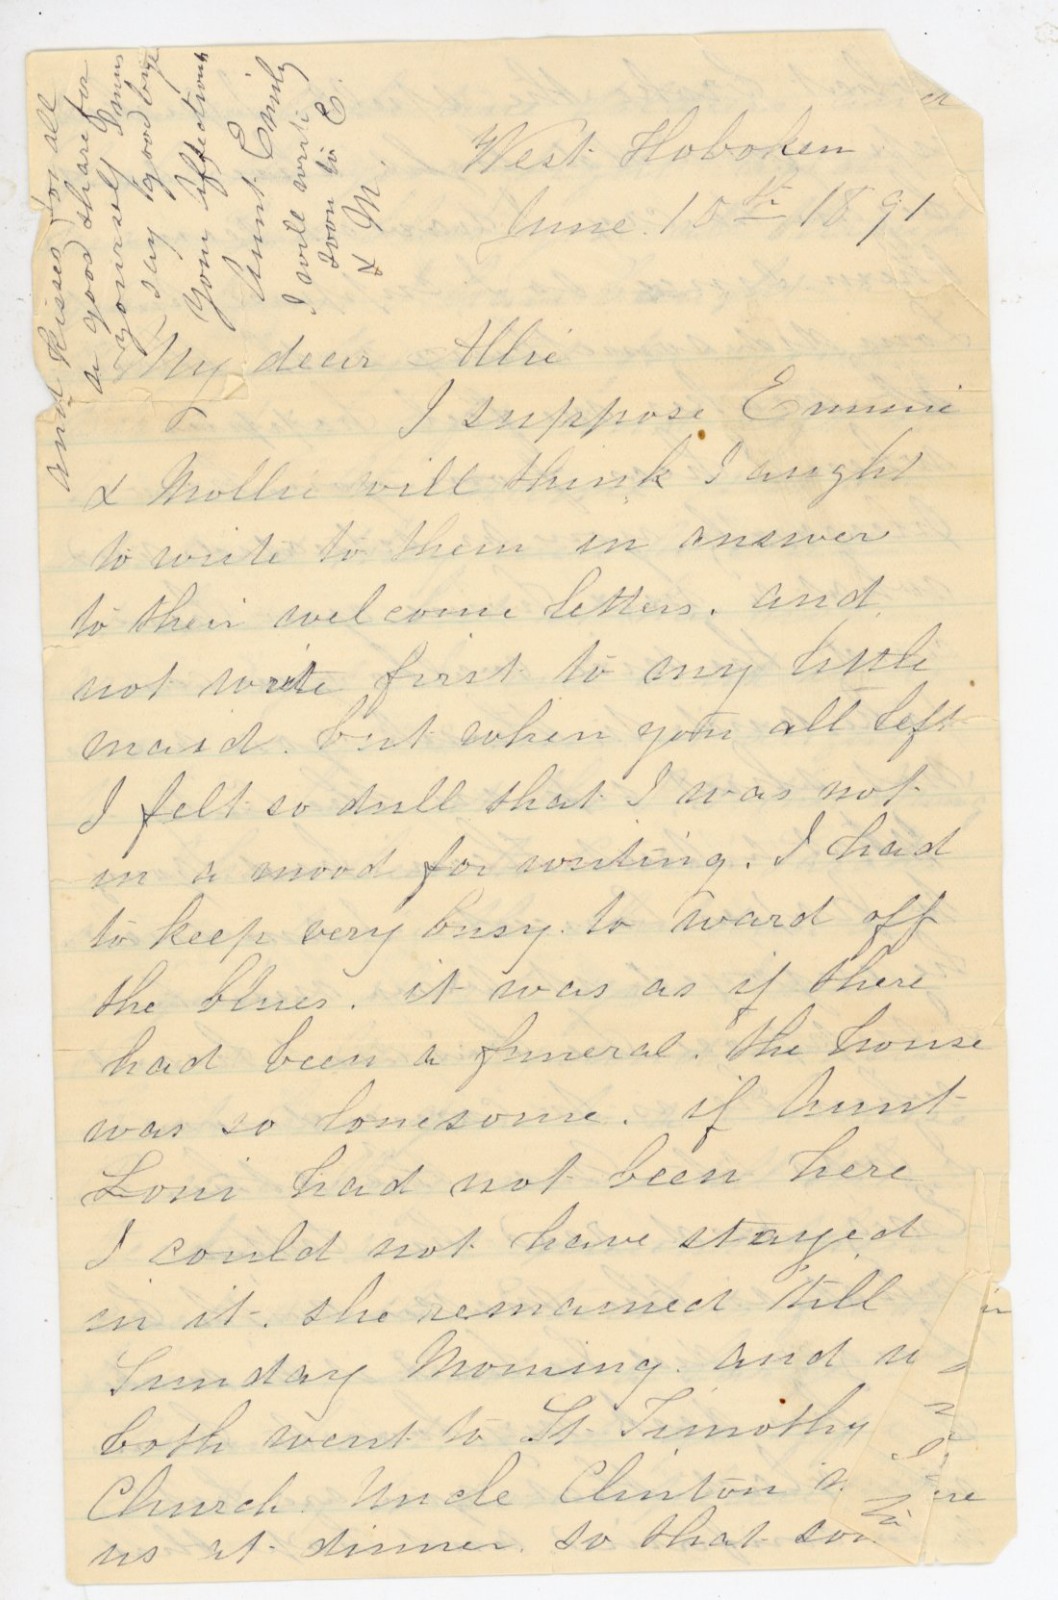 West Hoboken
June 10th 1891
My dear Allie
I suppose Emmie
& Mollie will think I aught
to write to them in answer
to their welcome letters. and
not write first to my little
maid. but when you all left
I felt so dull that I was not
in a mood for writing. I had
to keep very busy to ward off
the blues. it was as if there
had been a funeral. the house
was so lonesome. if Aunt
Loui had not been here
I could not have stayed
in it. she remained till
Sunday Morning. and
both went to St Timothy
Church. Uncle Clinton
us at dinner. so that
and kisses for all
a good share for
yourself I mus
say good bye
Your Affection
Aunt Emily
I will write
soon to E.
& M.